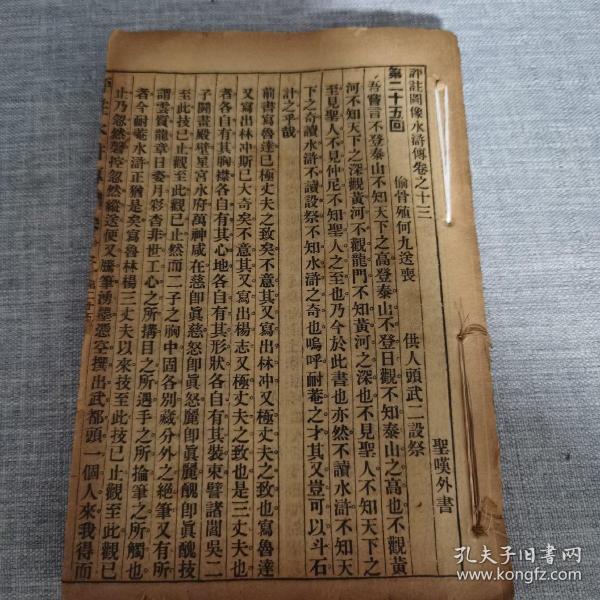 評註圖像水滸傳卷之十三
聖嘆外書
第二十五回
偷骨殖何九送喪
供人頭武二設祭
吾嘗言不登泰山不知天下之高登泰山不登日觀不知泰山之高也不觀黃
河不知天下之深觀黃河不觀龍門不知黃河之深也不見聖人不知天下之
至見聖人不見仲尼不知聖人之至也乃今於此書也亦然不讀水滸不知天
下之奇讀水滸不讀設祭不知水滸之奇也嗚呼耐菴之才其又豈可以斗石
計之乎哉
前書寫魯達已極丈夫之致矣不意其又寫出林冲又極丈夫之致也寫魯達
又寫出林冲斯已大奇矣不意其又寫出楊志又極丈夫之致也是三丈夫也
者各自有其胸襟各自有其心地各自有其形狀各自有其裝束譬諸閻吳二
子圖畫殿壁星宮水府萬神咸在慈卽眞慈怒卽眞怒麗卽眞麗醜卽眞醜技
至此技已止觀至此觀已止然而二子之胸中固各別藏分外之絕筆又有所
謂雲質龍章日姿月彩杳非世工心之所搆目之所遇手之所掄筆之所觸也
者今耐菴水滸正猶是矣寫魯林楊三丈夫以來技至此技已止觀至此觀已
止乃忽然磬控忽然縱送便又騰筆湧墨憑空撰出武都頭一個人來我得而
孔夫子旧书网
www.kongfz.com